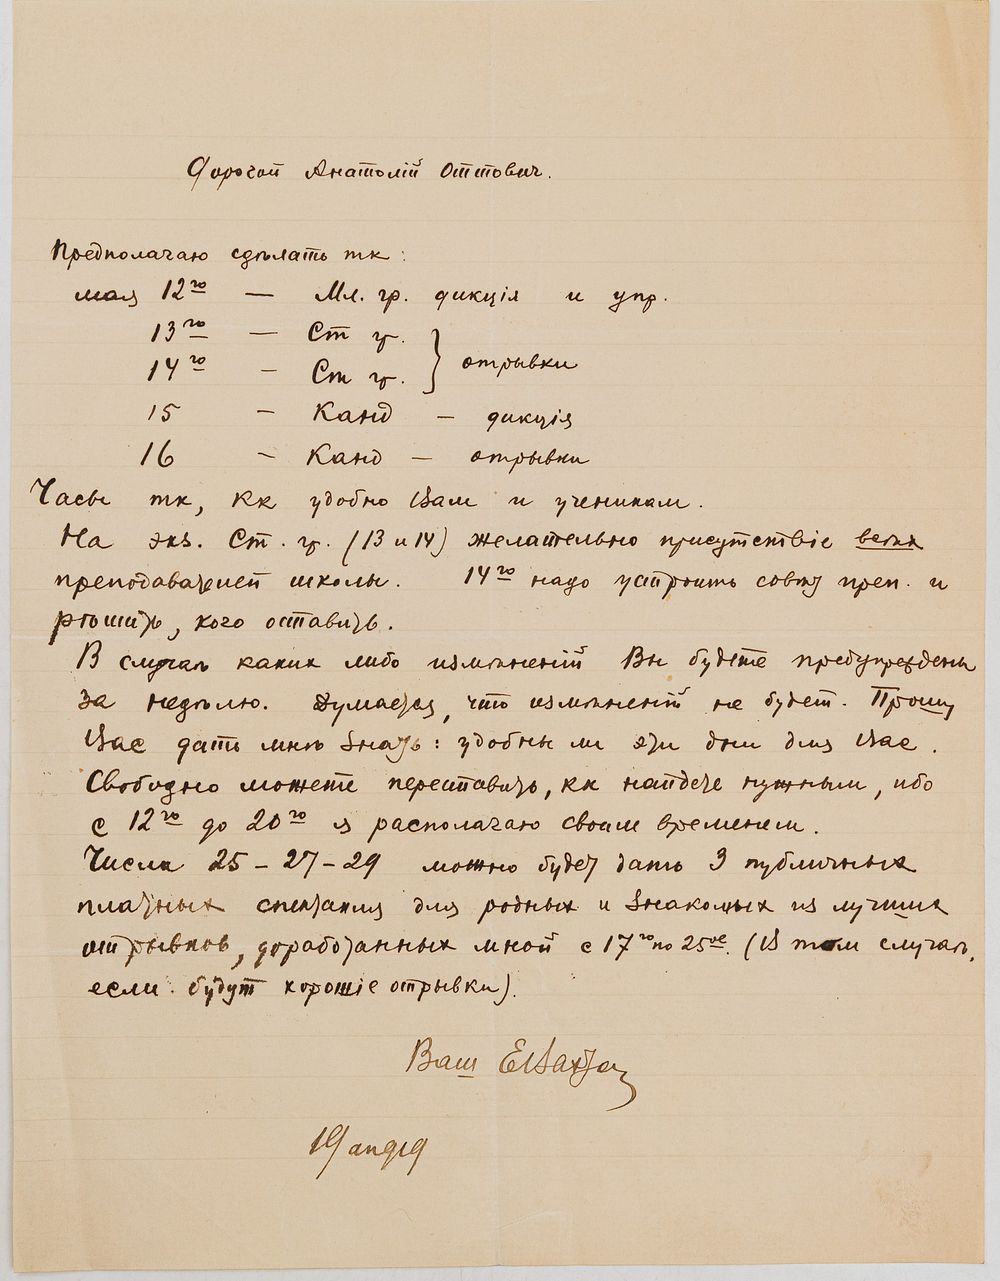 Дорогой Анатолій Оттович.
Предполагаю сдѣлать тк:
мая 12го — Мл. гр. дикція и упр.
13го — Ст гр. } отрывки
14го — Ст гр.
15 — Канд — дикція
16 — Канд — отрывки
Часы тк, кк удобно Вам и ученикам.
На экз. Ст. гр. (13 и 14) желательно присутствіе всех
преподавателей школы. 14го надо устроить совѣт преп. и
рѣшить, кого оставить.
В случаѣ каких либо измѣненій Вы будете предупреждены
за недѣлю. Думается, что измѣненій не будет. Прошу
Вас дать мнѣ знать: удобны ли эти дни для Вас.
Свободно можете переставить, кк найдете нужным, ибо
с 12го до 20го я располагаю своим временем.
Числа 25 – 27 – 29 можно будет дать 3 публичных
платных спектакля для родных и знакомых из лучших
отрывков, доработанных мной с 17го по 25ое. (В том случаѣ,
если будут хорошіе отрывки).
Ваш ЕВахтан
19 ап 919